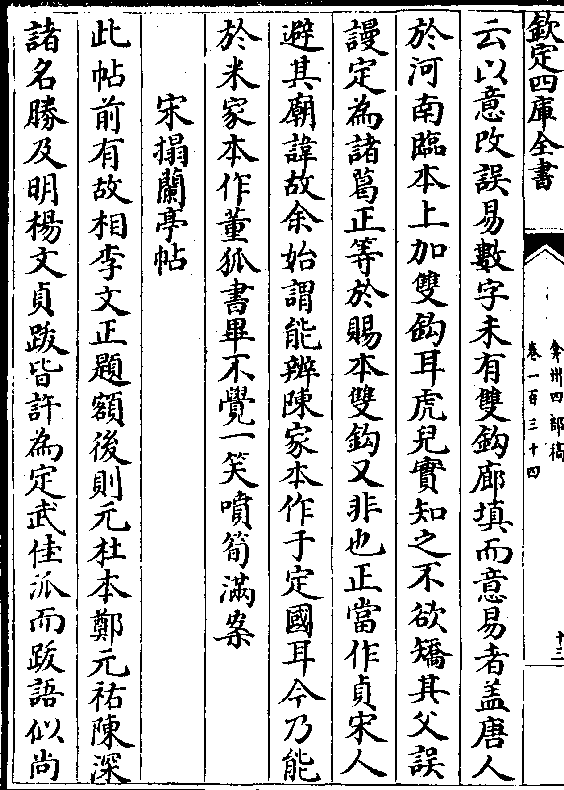 欽定四庫全書
弇州四部稿
卷一百三十四
十三
云以意改誤易數字未有雙鈎廊填而意易者盖唐人
於河南臨本上加雙鈎耳虎兒實知之不欲矯其父誤
謾定為諸葛正等於賜本雙鈎又非也正當作貞宋人
避其廟諱故余始謂能辨陳家本作于定國耳今乃能
於米家本作董狐書畢不覺一笑噴筍滿案
宋搨蘭亭帖
此帖前有故相李文正題額後則元杜本鄭元祐陳深
諸名勝及明楊文貞跋皆許為定武佳派而跋語似尚